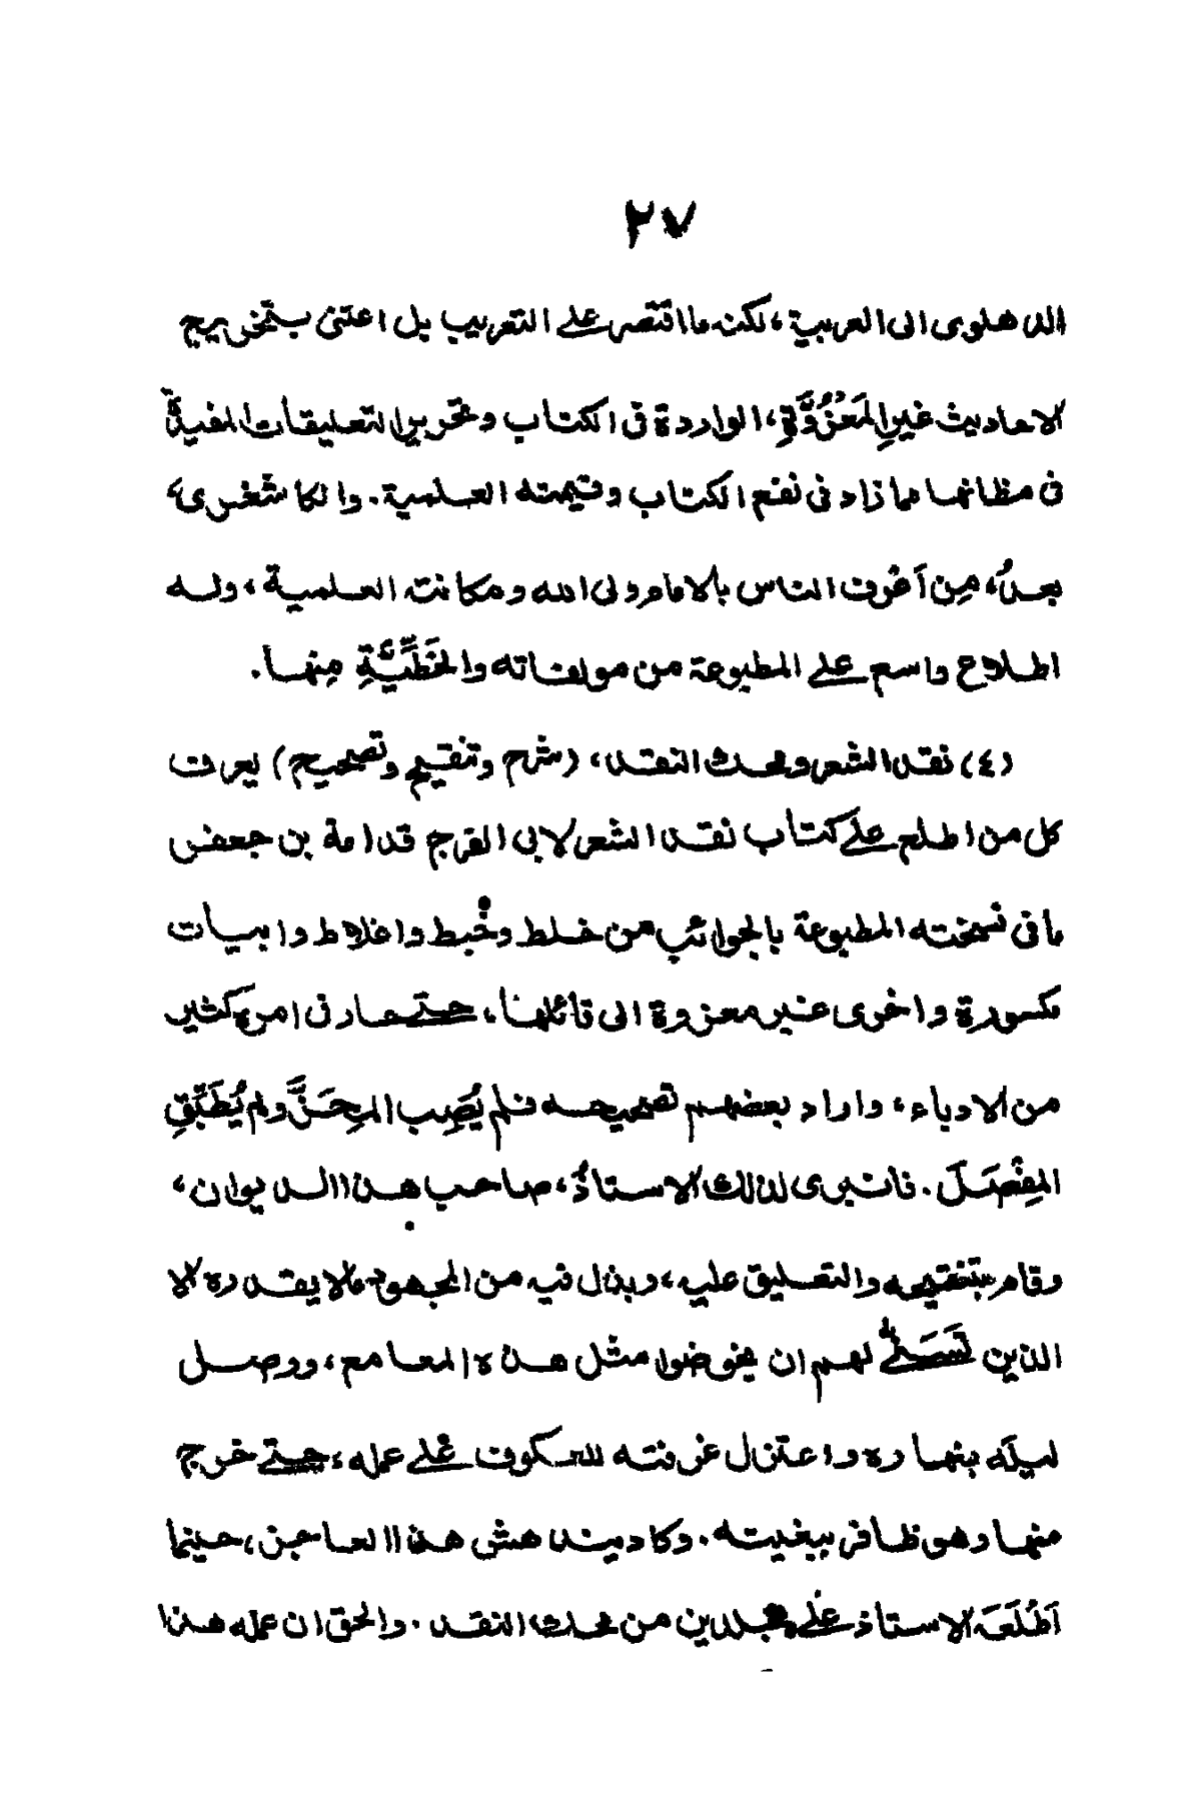 ٢٧
الدهلوى الى العربية، لكنه ما اقتصر على التعريب بل اعتنى بتخريج
الاحاديث غيرِ المَعْزُوَّةِ، الواردة فى الكتاب وتحرير التعليقات المفيدةِ
فى مظانها مما زاد فى نفع الكتاب وقيمته العلمية. والكاشغرى،
بعدُ، مِن أعْرف الناس بالامام ولى الله ومكانته العلمية، وله
اطلاع واسع على المطبوعة من مولفاته والخَطِّيَّةِ مِنها.
(٤) نقد الشعر ومحك النقد، (شرح وتنقيح وتصحيح) يعرف
كل من اطلع على كتاب نقد الشعر لابى الفرج قدامة بن جعفر
ما فى نسخته المطبوعة بالجوائب من خلط وخُبط واغلاط وابيات
مكسورة واخرى غير معزوة الى قائلها، حتى حار فى امره كثير
من الادباء، واراد بعضهم تصحيحه فلم يُصِب المَحَزَّ ولم يُطَبِّقِ
المِفْصَلَ. فانبرى لذلك الاستاذُ، صاحب هذا الديوان،
وقام بتنقيحه والتعليق عليه، وبذل فيه من المجهود مالا يقدره الا
الذين تَسَنّى لهم ان يخوضوا مثل هذه المعامع، ووصل
ليله بنهاره واعتزل غرفته للعكوف على عمله، حتى خرج
منها وهو ظافر ببغيته. وكاد يندهش هذا العاجز، حينما
اَطْلَعَه الاستاذ على مجلدين من محك النقد. والحق ان عمله هذا